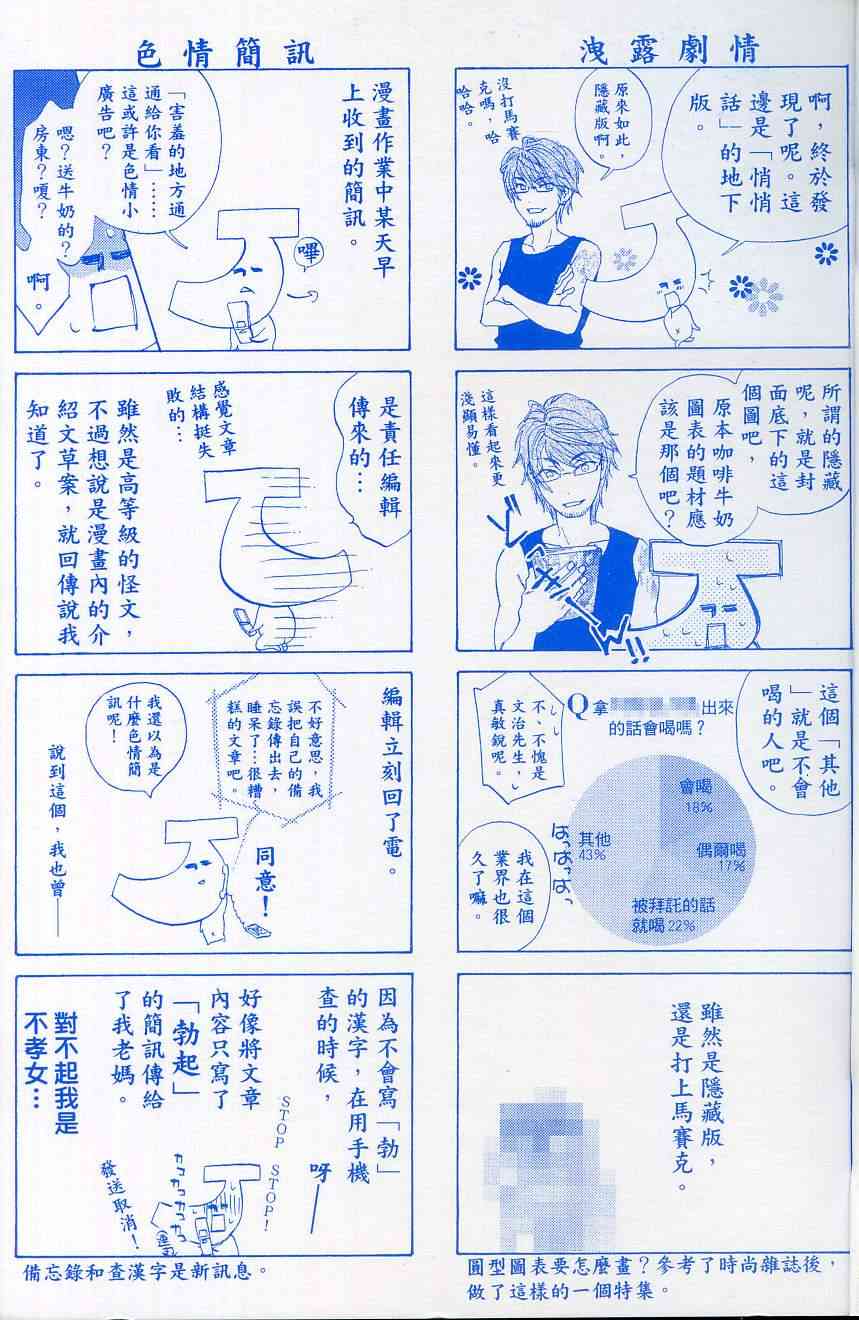 洩露劇情
啊，終於發
現了呢。這
邊是「悄悄
話」的地下
版。
原來如此，
隱藏版啊。
沒打馬賽
克嗎，哈
哈哈。
所謂的隱藏
呢，就是封
面底下的這
個圖吧，
原本咖啡牛奶
圖表的題材應
該是那個吧？
這樣看起來更
淺顯易懂。
這個「其他
」就是不會
喝的人吧。
Q拿
出來
的話會喝嗎？
會喝
18%
偶爾喝
17%
被拜託的話
就喝22%
其他
43%
不、不愧是
文治先生，
真敏銳呢。
はっはっはっ
我在這個
業界也很
久了嘛。
雖然是隱藏版，
還是打上馬賽克。
圓型圖表要怎麼畫？參考了時尚雜誌後，
做了這樣的一個特集。
色情簡訊
漫畫作業中某天早
上收到的簡訊。
嗶
「害羞的地方通
通給你看」……
這或許是色情小
廣告吧？
嗯？送牛奶的？
房東？嗄？
啊。
是責任編輯
傳來的…
感覺文章
結構挺失
敗的…
雖然是高等級的怪文，
不過想說是漫畫內的介
紹文草案，就回傳說我
知道了。
編輯立刻回了電。
不好意思，我
誤把自己的備
忘錄傳出去，
睡呆了…很糟
糕的文章吧。
同意！
我還以為是
什麼色情簡
訊呢！
說到這個，我也曾——
因為不會寫「勃」
的漢字，在用手機
查的時候，
呀——
好像將文章
內容只寫了
「勃起」
的簡訊傳給
了我老媽。
STOP STOP!
STOP
ガコガコガコガコ
發送取消！
對不起我是
不孝女…
備忘錄和查漢字是新訊息。